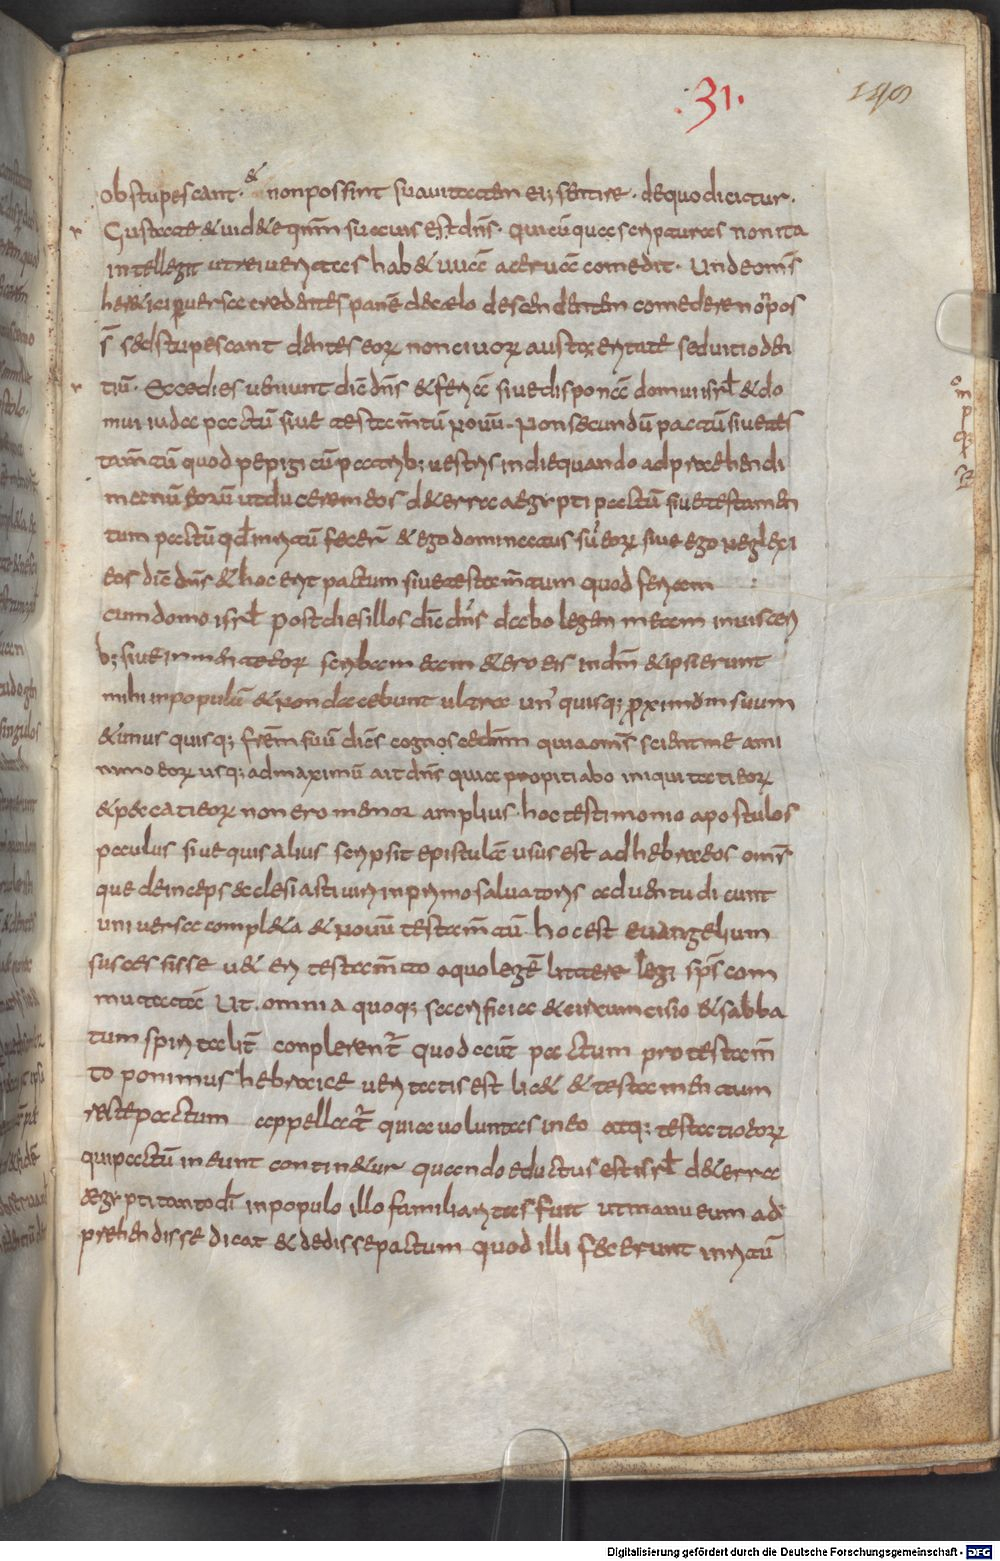 .31.
149
&
obstupescant. non possint suauitatem ei; sentire. de quo dicitur.
Gustate & uid&e qnm suauis est dns. quicūquae scripturas non ita
intellegit ut rei ueritas hab& uuā aceruā comedit. Unde oms
her&ici peruersae credentes panē de caelo descendentem comedere nō pos
s̄ sed stupescant dentes eoꝝ non ciuoꝝ austeritate sed uitio den
tiū. Ecce dies ueniunt dic̄ dns & feriā siue disponā domui isrl & do
mui iuda pactū siue testam̄tū nouū. Non secundū pactū siue tes
tam̄tū quod pepigi cū patrib; uestris in die quando adpraehendi
manū eorū ut ducerem eos de terra aegypti pactū siue testamen
tum pactū qd irritū fecer̄ & ego dominatus sū eoꝝ siue ego neglexi
eos dic̄ dns & hoc erit pactum siue testam̄tum quod feriam
cum domo isrl post dies illos dic̄ dns dabo legem meam in uisceri
b; siue in mente eoꝝ scribam eam & ero eis in dm & ipsi erunt
mihi in populū & non docebunt ultra un' quisq; proximum suum
& unus quisq; frem suū dicens cognoscedn̄m quia oms scient me a mi
nimo eoꝝ usq; ad maximū ait dns quia propitiabo iniquitati eoꝝ
& peccati eoꝝ non ero memor amplius. hoc testimonio apostulos
paulus siue quis alius scripsit epistulā usus est ad hebraeos oms
que deinceps aeclesiasticiuiri in primo saluatoris aduentu dicunt
uniuersa compl&a & nouū testam̄tū. hoc est euangelium
successisse u&eri testam̄to a quo legē littere legi sps com
mutatā Ut omnia quoq; sacrificia & circumcisio & sabba
tum spiritalit̄ conplerent̄ quod aut̄ pactum pro testam̄
to ponimus hebraicae ueritatis est lic& & testamentum
recte pactum appellat̄ quia uoluntas in eo atq; testatio eoꝝ
qui pactū ineunt contin&ur quando eductus est isrl de terra
aegypti tanto dī in populo illo familiaritas fuit ut manu eum ad
prehendisse dicat & dedisse pactum quod illi fecerunt irritū
Digitalisierung gefördert durch die Deutsche Forschungsgemeinschaft - DFG